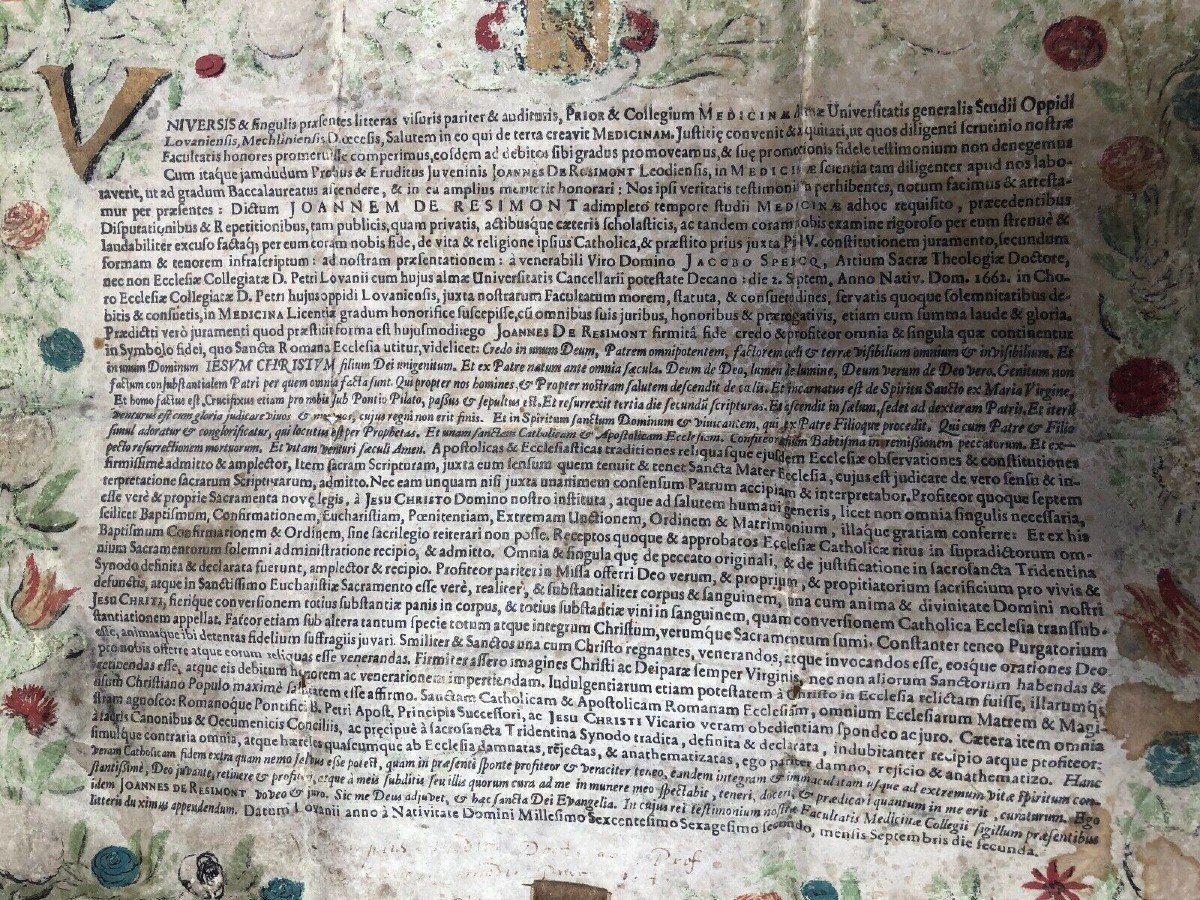 VNIVERSIS & singulis præsentes litteras visuris pariter & audituris, PRIOR & Collegium MEDICINÆ Almæ Universitatis generalis Studii Oppidi
Lovaniensis, Mechliniensis Diœcesis, Salutem in eo qui de terra creavit MEDICINAM. Justitię convenit & æquitati, ut quos diligenti scrutinio nostræ
Facultatis honores promeruisse comperimus, eosdem ad debitos sibi gradus promoveamus, & suę promotionis fidele testimonium non denegemus
Cum itaque jamdudum Probus & Eruditus Juveninis JOANNES DE RESIMONT Leodiensis, in MEDICINÆ scientia tam diligenter apud nos labo-
raverit, ut ad gradum Baccalaureatus ascendere, & in eu amplius meruerit honorari: Nos ipsi veritatis testimonium perhibentes, notum facimus & attesta-
mur per præsentes: Dictum JOANNEM DE RESIMONT adimpleto tempore studii MEDICINÆ adhoc requisito, præcedentibus
Disputationibus & Repetitionibus, tam publicis, quam privatis, actibusque cæteris scholasticis, ac tandem coram nobis examine rigoroso per eum strenuè &
laudabiliter excuso factaq; per eum coram nobis fide, de vita & religione ipsius Catholica, & præstito prius juxta Pij IV. constitutionem juramento, secundum
formam & tenorem infrascriptum: ad nostram præsentationem: à venerabili Viro Domino JACOBO SPEICQ, Artium Sacræ Theologiæ Doctore,
nec non Ecclesiæ Collegiatæ D. Petri Lovanii cum hujus almæ Universitatis Cancellarii potestate Decano: die 2. Septem. Anno Nativ. Dom. 1662. in Cho-
ro Ecclesiæ Collegiatæ D. Petri hujus oppidi Lovaniensis, juxta nostrarum Facultatum morem, statuta, & consuetudines, servatis quoque solemnitatibus de-
bitis & consuetis, in MEDICINA Licentiæ gradum honorifice suscepisse, cũ omnibus suis juribus, honoribus & prærogativis, etiam cum summa laude & gloria.
Prædicti verò juramenti quod præstitit forma est hujusmodi: ego JOANNES DE RESIMONT firmitâ fide credo & profiteor omnia & singula quæ continentur
in Symbolo fidei, quo Sancta Romana Ecclesia utitur, videlicet: Credo in unum Deum, Patrem omnipotentem, factorem cæli & terræ visibilium omnium & invisibilium. Et
in unum Dominum IESVM CHRISTVM filium Dei unigenitum. Et ex Patre natum ante omnia sæcula. Deum de Deo, lumen de lumine, Deum verum de Deo vero. Genitum non
factum consubstantialem Patri per quem omnia facta sunt. Qui propter nos homines, & Propter nostram salutem descendit de cælis. Et incarnatus est de Spiritu Sancto ex Maria Virgine,
Et homo factus est, Crucifixus etiam pro nobis sub Pontio Pilato, passus & sepultus est. Et resurrexit tertia die secundũ scripturas. Et ascendit in cælum, sedet ad dexteram Patris, Et iterũ
venturus est cum gloria judicare vivos & mortuos, cujus regni non erit finis. Et in Spiritum sanctum Dominum & vivicantem, qui ex Patre Filioque procedit. Qui cum Patre & Filio
simul adoratur & conglorificatur, qui locutus est per Prophetas. Et unam sanctam Catholicam & Apostolicam Ecclesiam. Confiteor unum Baptisma in remissionem peccatorum. Et ex-
pecto resurrectionem mortuorum. Et vitam venturi sæculi Amen. Apostolicas & Ecclesiasticas traditiones reliquasque ejusdem Ecclesiæ observationes & constitutiones
firmissimè admitto & amplector, Item sacram Scripturam, juxta eum sensum quem tenuit & tenet Sancta Mater Ecclesia, cujus est judicare de vero sensu & in-
terpretatione sacrarum Scripturarum, admitto. Nec eam unquam nisi juxta unanimem consensum Patrum accipiam & interpretabor. Profiteor quoque septem
esse verè & proprie Sacramenta novę legis, à JESU CHRISTO Domino nostro instituta, atque ad salutem humani generis, licet non omnia singulis necessaria,
scilicet Baptismum, Confirmationem, Eucharistiam, Pœnitentiam, Extremam Unctionem, Ordinem & Matrimonium, illaque gratiam conferre: Et ex his
Baptismum Confirmationem & Ordinem, sine sacrilegio reiterari non posse. Receptos quoque & approbatos Ecclesiæ Catholicæ ritus in supradictorum om-
nium Sacramentorum solemni administratione recipio, & admitto. Omnia & singula quę de peccato originali, & de justificatione in sacrosancta Tridentina
Synodo definita & declarata fuerunt, amplector & recipio. Profiteor pariter in Missa offerri Deo verum, & proprium, & propitiatorium sacrificium pro vivis &
defunctis, atque in Sanctissimo Eucharistiæ Sacramento esse verè, realiter, & substantialiter corpus & sanguinem, una cum anima & divinitate Domini nostri
JESU CHRISTI, fierique conversionem totius substantiæ panis in corpus, & totius substantiæ vini in sanguinem, quam conversionem Catholica Ecclesia transsub-
stantiationem appellat. Fateor etiam sub altera tantum specie totum atque integrum Christum, verumque Sacramentum sumi. Constanter teneo Purgatorium
esse, animasque ibi detentas fidelium suffragiis juvari. Smiliter & Sanctos una cum Christo regnantes, venerandos, atque invocandos esse, eosque orationes Deo
pro nobis offerre atque eorum reliquas esse venerandas. Firmiter assero imagines Christi ac Deiparæ semper Virginis, nec non aliorum Sanctorum habendas &
retinendas esse, atque eis debitum honorem ac venerationem impertiendam. Indulgentiarum etiam potestatem à Christo in Ecclesia relictam fuisse, illarumq;
usum Christiano Populo maximè salutarem esse affirmo. Sanctam Catholicam & Apostolicam Romanam Ecclesiam, omnium Ecclesiarum Matrem & Magi-
stram agnosco: Romanoque Pontifici B. Petri Apost. Principis Successori, ac JESU CHRISTI Vicario veram obedientiam spondeo ac juro. Cætera item omnia
à sacris Canonibus & Oecumenicis Conciliis, ac præcipuè à sacrosancta Tridentina Synodo tradita, definita & declarata, indubitanter recipio atque profiteor:
simulque contraria omnia, atque hæreses quascumque ab Ecclesia damnatas, rejectas, & anathematizatas, ego pariter damno, rejicio & anathematizo. Hanc
veram Catholicam fidem extra quam nemo salvus esse potest, quam in præsenti sponte profiteor & veraciter teneo, eandem integram & immaculatam usque ad extremum vitæ spiritum con-
stantissimè, Deo juvante, retinere & profiteri, atque à meis subditis seu illa quorum cura ad me in munere meo spectabit, teneri, doceri, & prædicari quantum in me erit, curaturum. Ego
idem JOANNES DE RESIMONT voveo & juro. Sic me Deus adjuvet, & hæc sancta Dei Evangelia. In cujus rei testimonium nostræ Facultatis Medicinæ Collegii sigillum præsentibus
litteris duximus appendendum. Datum Lovanii anno à Nativitate Domini Millesimo Sexcentesimo Sexagesimo secundo, mensis Septembris die secunda.